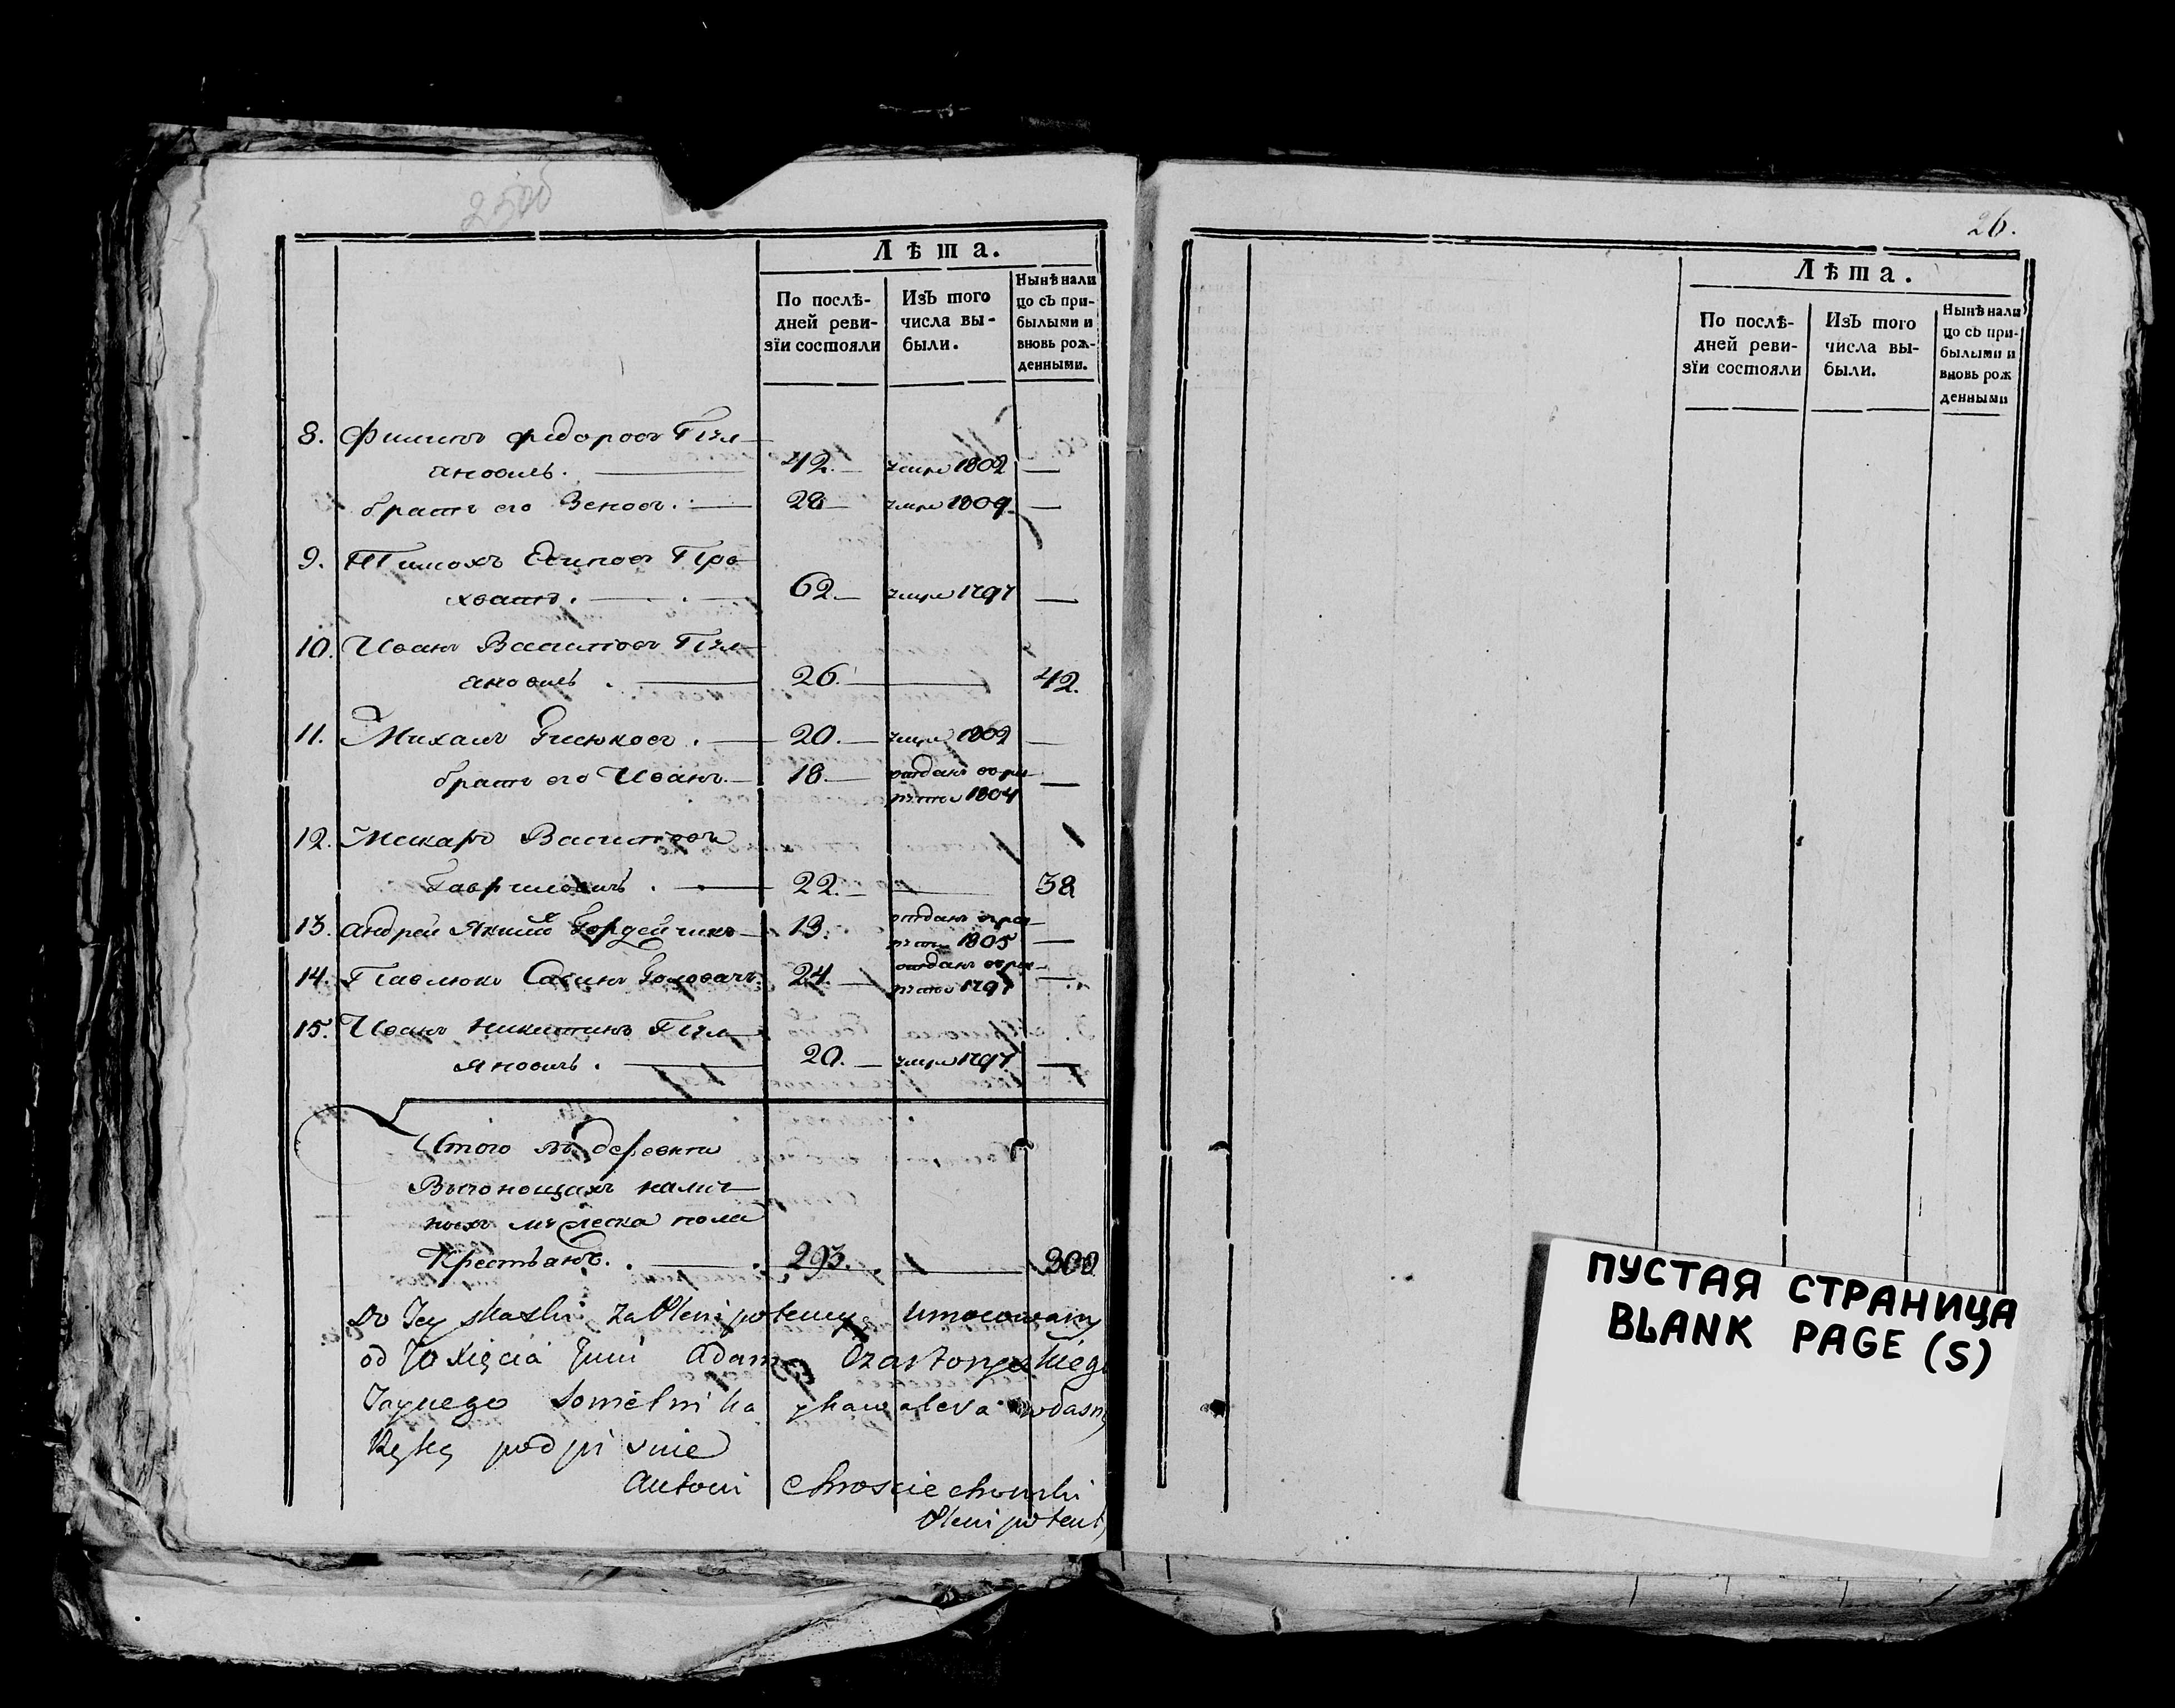 25об
Лѣта.
По послѣ-
дней реви-
зїи состояли
Изъ того
числа вы-
были.
Нынѣ нали
цо съ при-
былыми и
вновь рож-
денными.
8. Филипъ Федоровъ Гул-
яновичъ. 42. умре 1802 —
братъ его Зеновъ. 28 умре 1809 —
9. Тимохъ Есиповъ Про
хватъ. 62. умре 1797 —
10. Иванъ Васильевъ Гул-
яновичъ. 26. — 42.
11. Михаилъ 20. умре 1802 —
братъ его Иванъ. 18. отданъ врек-
руты 1804 —
12. Макаръ Васильевъ
Гавриловичъ. 22. — 38
13. Андрей Якимовъ Гордейчикъ 19. отданъ врек-
руты 1805 —
14. Павлюкъ Савинъ Головачъ. 24. отданъ врек-
руты 1797 —
15. Иванъ Никитинъ Гул-
яновичъ. 20. умре 1797 —
Итого въ деревни
Выгонощахъ налич-
ныхъ мужеска пола
Крестьянъ. 293. — 302
Do Tey skazki za Plenipotencyą Umocowany
od Jo Xięcia Jmci Adama Czartoryskiego
Taynego Sowietnika y kawalera własną
Ręką podpisuie
Antoni Chrościechowski
Plenipotent
26.
Лѣта.
По послѣ-
дней реви-
зїи состояли
Изъ того
числа вы-
были.
Нынѣ нали
цо съ при-
былыми и
вновь рож
денными
ПУСТАЯ СТРАНИЦА
BLANK PAGE (S)